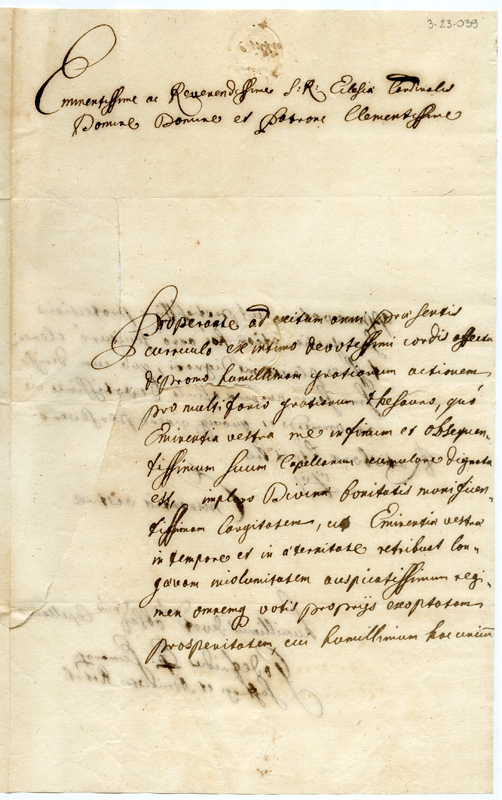 3-23-039
Eminentissime ac Reverendissime S: R: Eclesiæ Cardinalis
Domine Domine et Patrone Clementissime
Properante ad exitum anni præsentis
curriculo ex intimo devotissimi cordis affectu
depromo humillimam gratiarum actionem
pro multifario gratiarum thesauro, quó
Eminentia vestra me infimum et obsequen-
tissimum suum Capellanum cumulare dignata
est, imploro Divinæ bonitatis munificen
tissimam largitatem, ut Eminentiæ vestræ
in tempore et in æternitate retribuat lon-
gævam incolumitatem auspicatissimum regi-
men omnemq votis proprijs exoptatam
prosperitatem, cui humillimum hoc